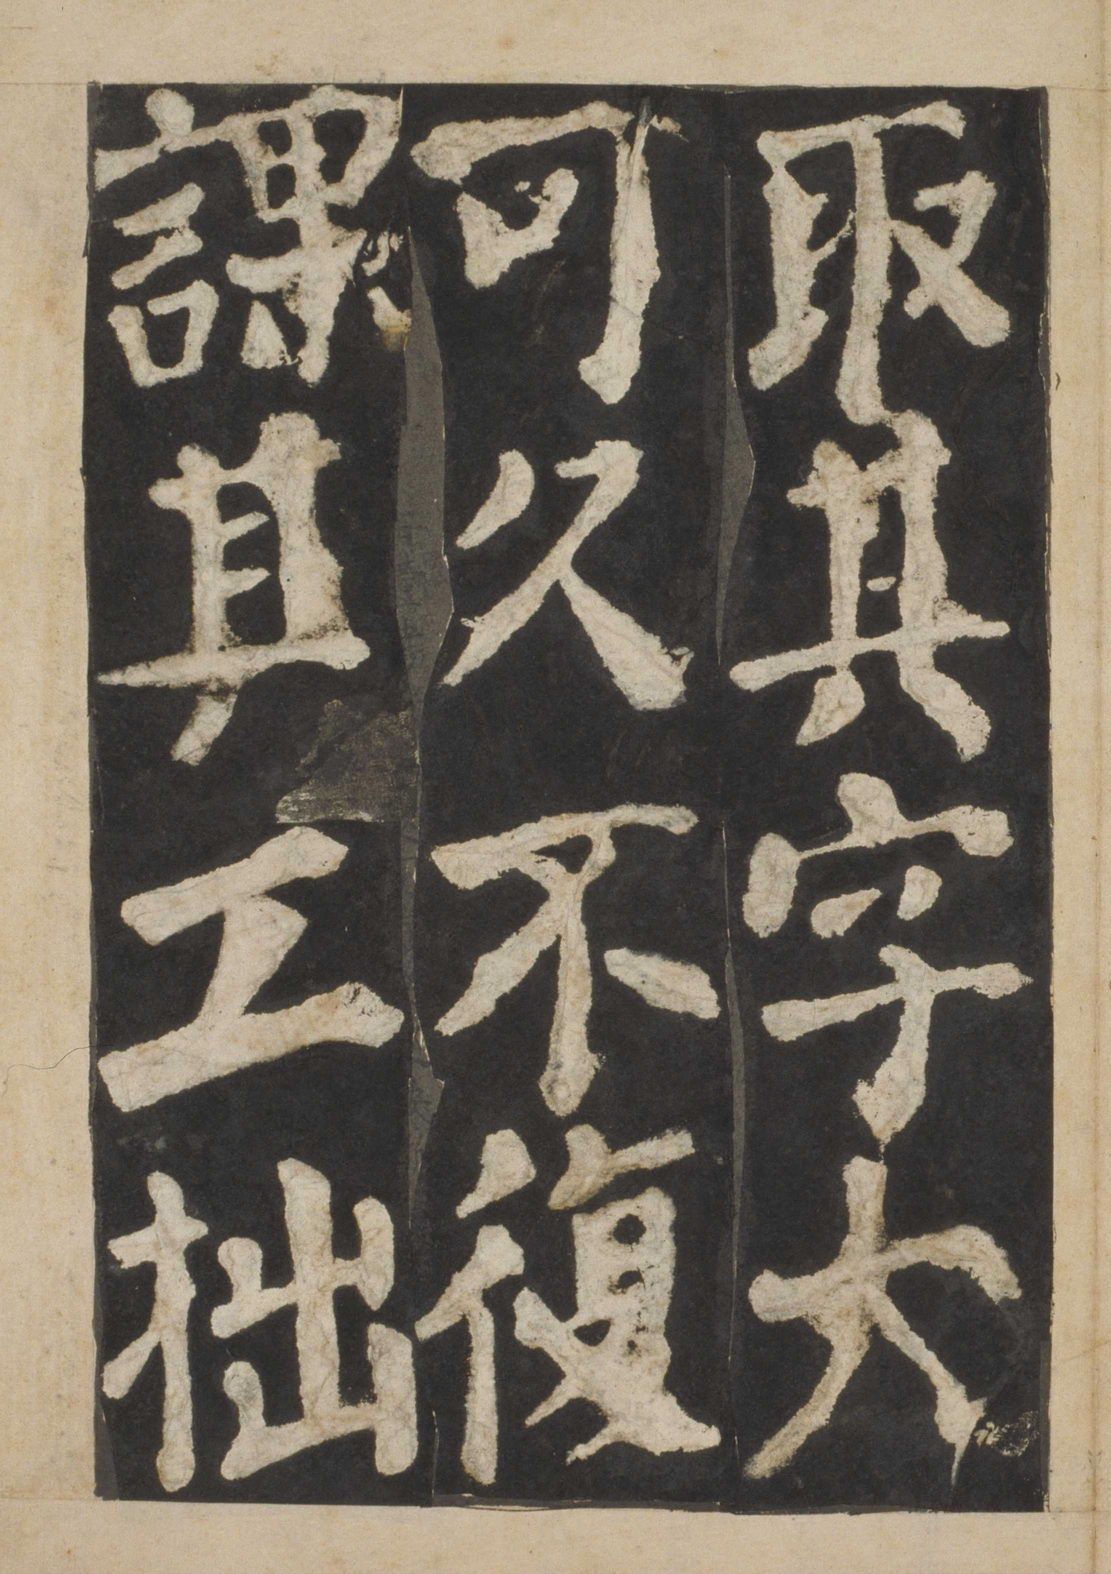 取其字大
可久不復
課其工拙